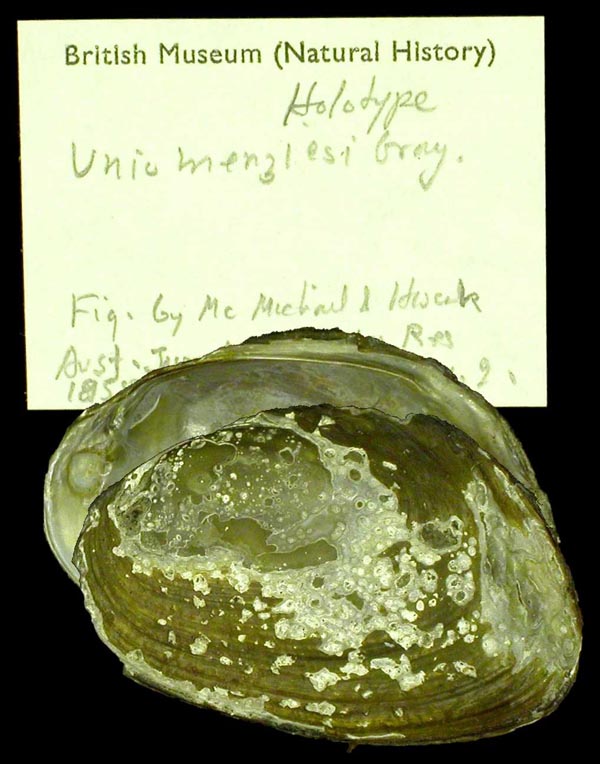 British Museum (Natural History)
Holotype
Unio menziesi Gray.
Fig. by Mc Michael &
Aust.
9.